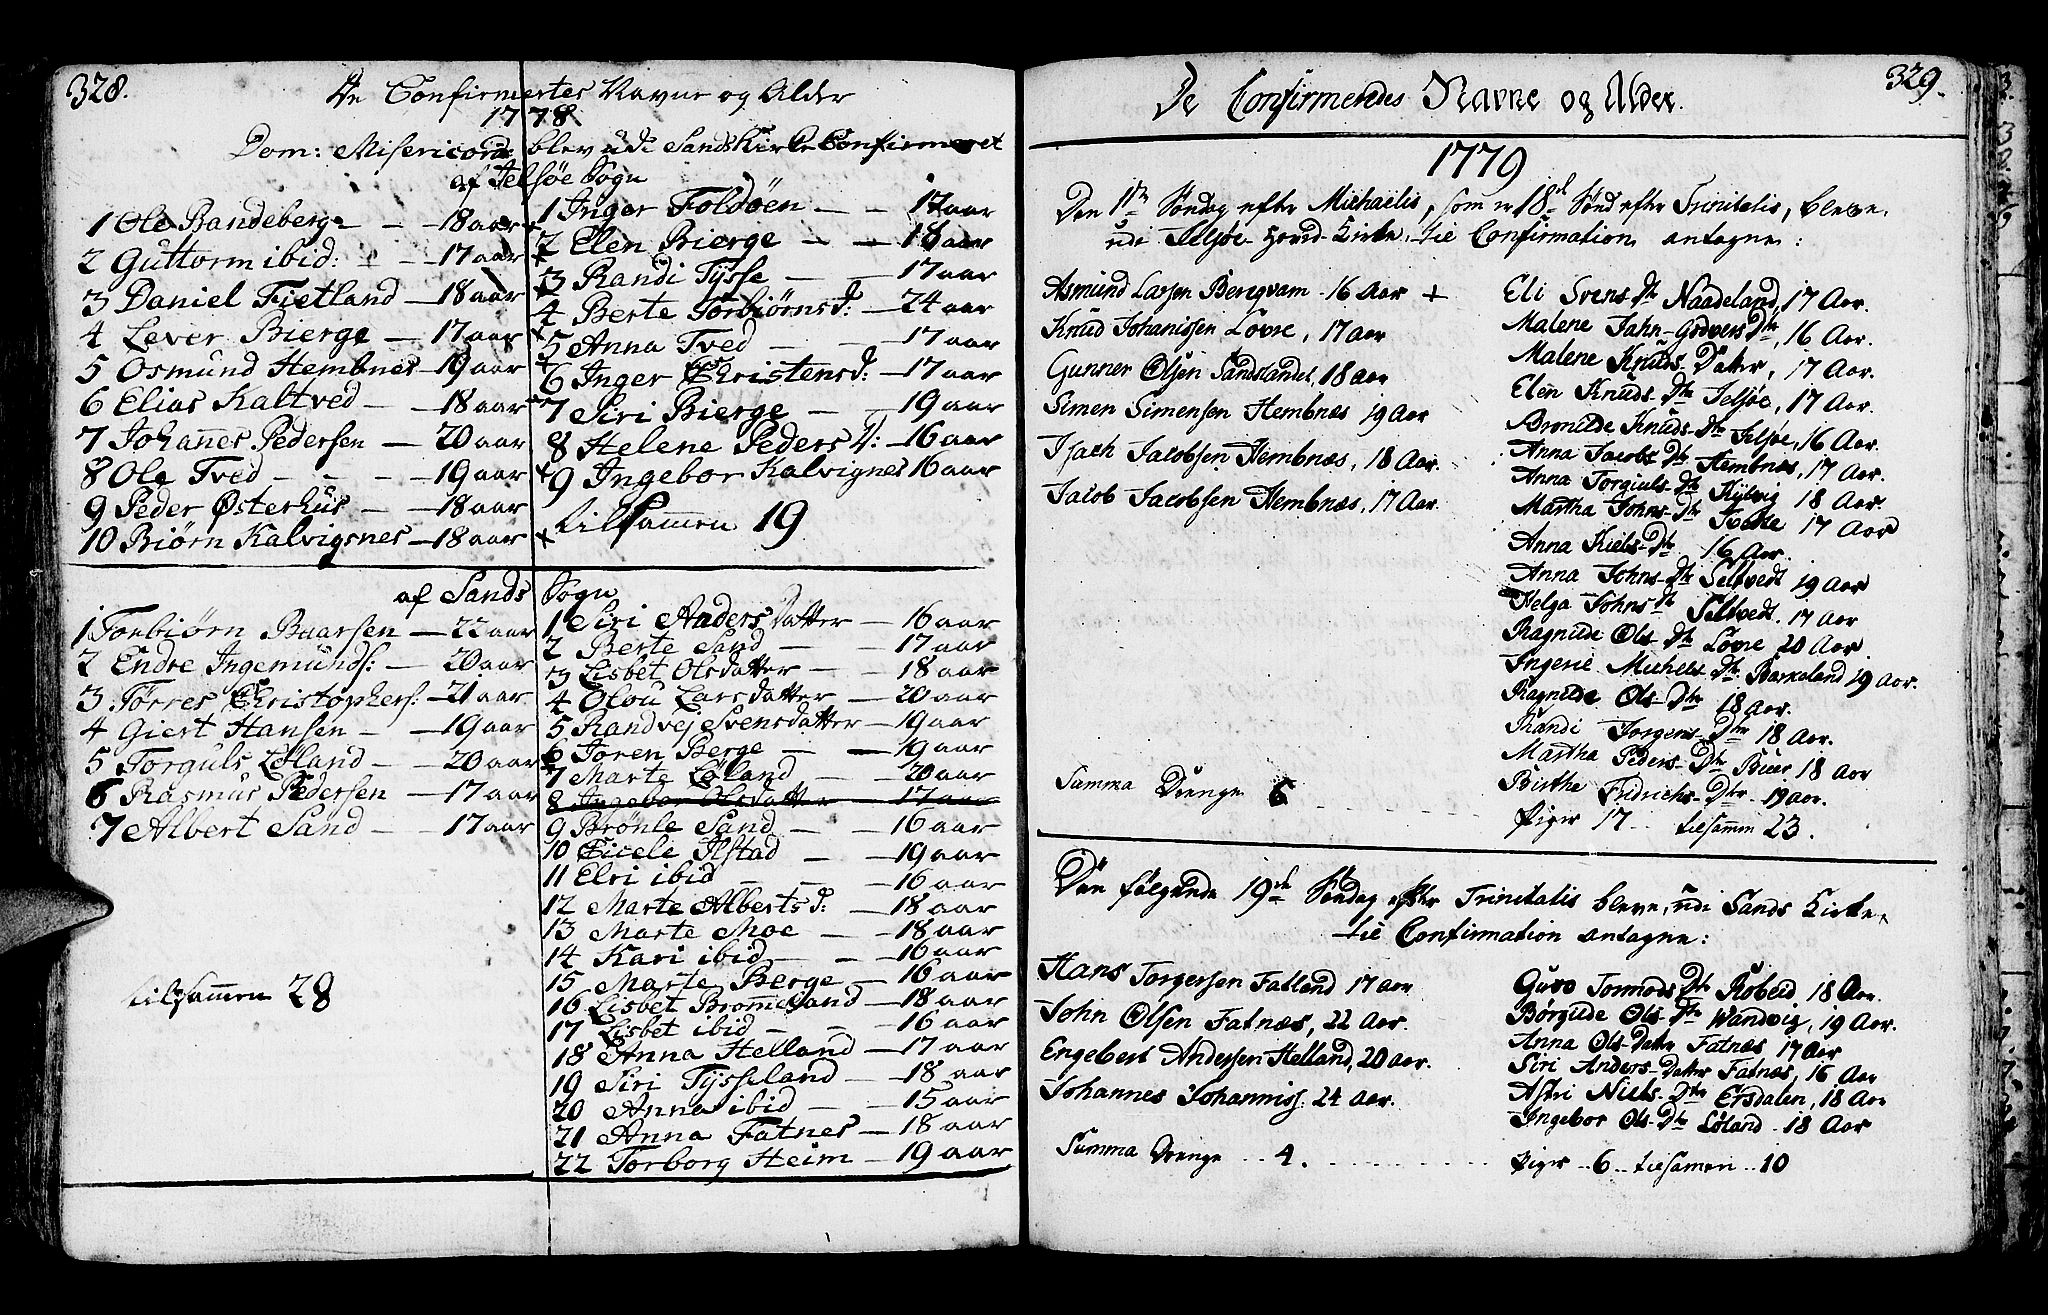 328.
De Confirmertes Navne og Alder
1778
Dom: Misericord: blev udi Sands Kirke Confirmeret
af Jelsøe Sogn
1 Ole Bandeberge — 18 aar
2 Guttorm ibid: — 17 aar
3 Daniel Fietland — 18 aar
4 Lever Bierge — 17 aar
5 Osmund Hembnes — 19 aar
6 Elias Kaltved — 18 aar
7 Johannes Pedersen — 20 aar
8 Ole Tved — 19 aar
9 Peder Østerhus — 18 aar
10 Biørn Kalvigsnes — 18 aar
1 Inger Foldøen — 17 aar
2 Elen Bierge — 18 aar
3 Randi Tysse — 17 aar
4 Berte Torbiørnsd: — 24 aar
5 Anna Tved — 17 aar
6 Inger Christensd: — 17 aar
7 Siri Bierge — 19 aar
8 Helene Pedersd: — 16 aar
9 Ingebor Kalvignes 16 aar
tilsammen 19
af Sands Sogn
1 Torbiørn Baarsen — 22 aar
2 Endre Ingemunds: — 20 aar
3 Tørres Christophers: — 21 aar
4 Giert Hansen — 19 aar
5 Torguls Løland — 20 aar
6 Rasmus Pedersen — 17 aar
7 Albert Sand — 17 aar
tilsammen 28
1 Siri Anders Datter — 16 aar
2 Berte Sand — 17 aar
3 Lisbet Olsdatter — 18 aar
4 Olou Larsdatter — 20 aar
5 Randvej Svensdatter — 19 aar
6 Joren Berge — 19 aar
7 Marte Løland — 20 aar
8 Ingebor Olsdatter 17 aar
9 Brønle Sand — 16 aar
10 Cicele Ilstad — 19 aar
11 Elri ibid — 16 aar
12 Marte Albertsd: — 18 aar
13 Marte Moe — 18 aar
14 Kari ibid — 16 aar
15 Marte Berge — 16 aar
16 Lisbet Brommeland — 18 aar
17 Lisbet ibid — 16 aar
18 Anna Helland — 17 aar
19 Siri Tysseland — 18 aar
20 Anna ibid — 15 aar
21 Anna Fatnes — 18 aar
22 Torborg Heim — 19 aar
329.
De Confirmerdes Navne og Alder.
1779
Den 1te Søndag efter Michaelis, som er 18de Sønd efter Trinitatis, bleve
udi Jelsøe Hoved-Kirke til Confirmation antagne:
Asmund Larsen Bergvam - 16 Aar +
Knud Johanissen Lovre, 17 aar
Gunner Olsen Sandslandet, 18 aar
Simen Simensen Hembnæs 19 Aar
Isach Jacobsen Hembnæs, 18 Aar.
Jacob Jacobsen Hembnæs, 17 Aar.
Summa Drenge 6
Eli Svens Dtr Naadeland, 17 Aar.
Malene Jahn-Godvers Dtr, 16 Aar.
Malene Knuds-Datter, 17 Aar.
Elen Knuds-Dtr Jelsøe, 17 Aar.
Bronilde Knuds-Dtr Jelsøe, 16 Aar.
Anna Jacobs Dtr Hembnæs, 17 Aar.
Anna Torguls-Dtr Kylvig 18 Aar.
Martha Johns-Dtr 17 Aar
Anna Kiels-Dtr 16 Aar.
Anna Johns-Dtr Seltvedt 19 Aar
Helga Johns Dtr Seltvedt. 17 Aar
Ragnilde Ols-Dtr Lovre 20 Aar.
Ingerie Michels Dtr Barkeland 19 Aar.
Ragnilde Ols-Dtr 18 Aar.
Randi Jorgens-Dtr 18 Aar.
Martha Peders-Dtr Buer 18 Aar
Birthe Fridrichs-Dtr. 19 Aar.
Piger 17 .. tilsamm 23.
Den følgende 19de Søndag efter Trinitatis bleve, udi Sands Kirke,
til Confirmation antagne:
Hans Torgersen Fatland 17 aar
John Olsen Fatnæs, 22 Aar.
Engebert Andersen Helland, 20 aar.
Johannes Johanniss: 24 Aar.
Summa Drenge .. 4.
Guro Tormods Dtr Robeid 18 Aar.
Børgilde Ols-Dtr Wandvig, 19 Aar.
Anna Ols-Datter Fatnæs, 17 Aar
Siri Anders-Datter Fatnæs, 16 Aar
Astri Niels-Dtr Ersdalen, 18 Aar
Ingebor Ols-Dtr Løland - 18 Aar
Piger .. 6 .. tilsamen .. 10